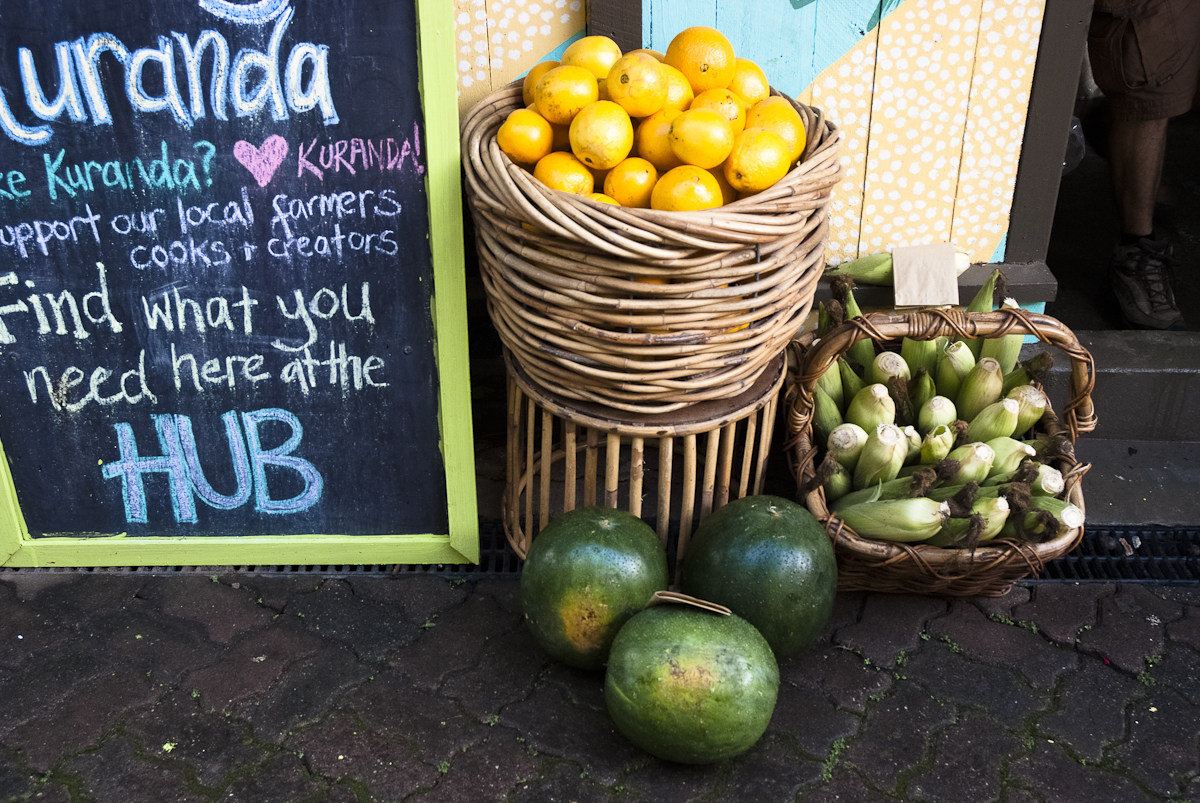 Kuranda
ke Kuranda? ♥ KURANDA!
upport our local farmers
cooks + creators
Find what you
need here at the
HUB